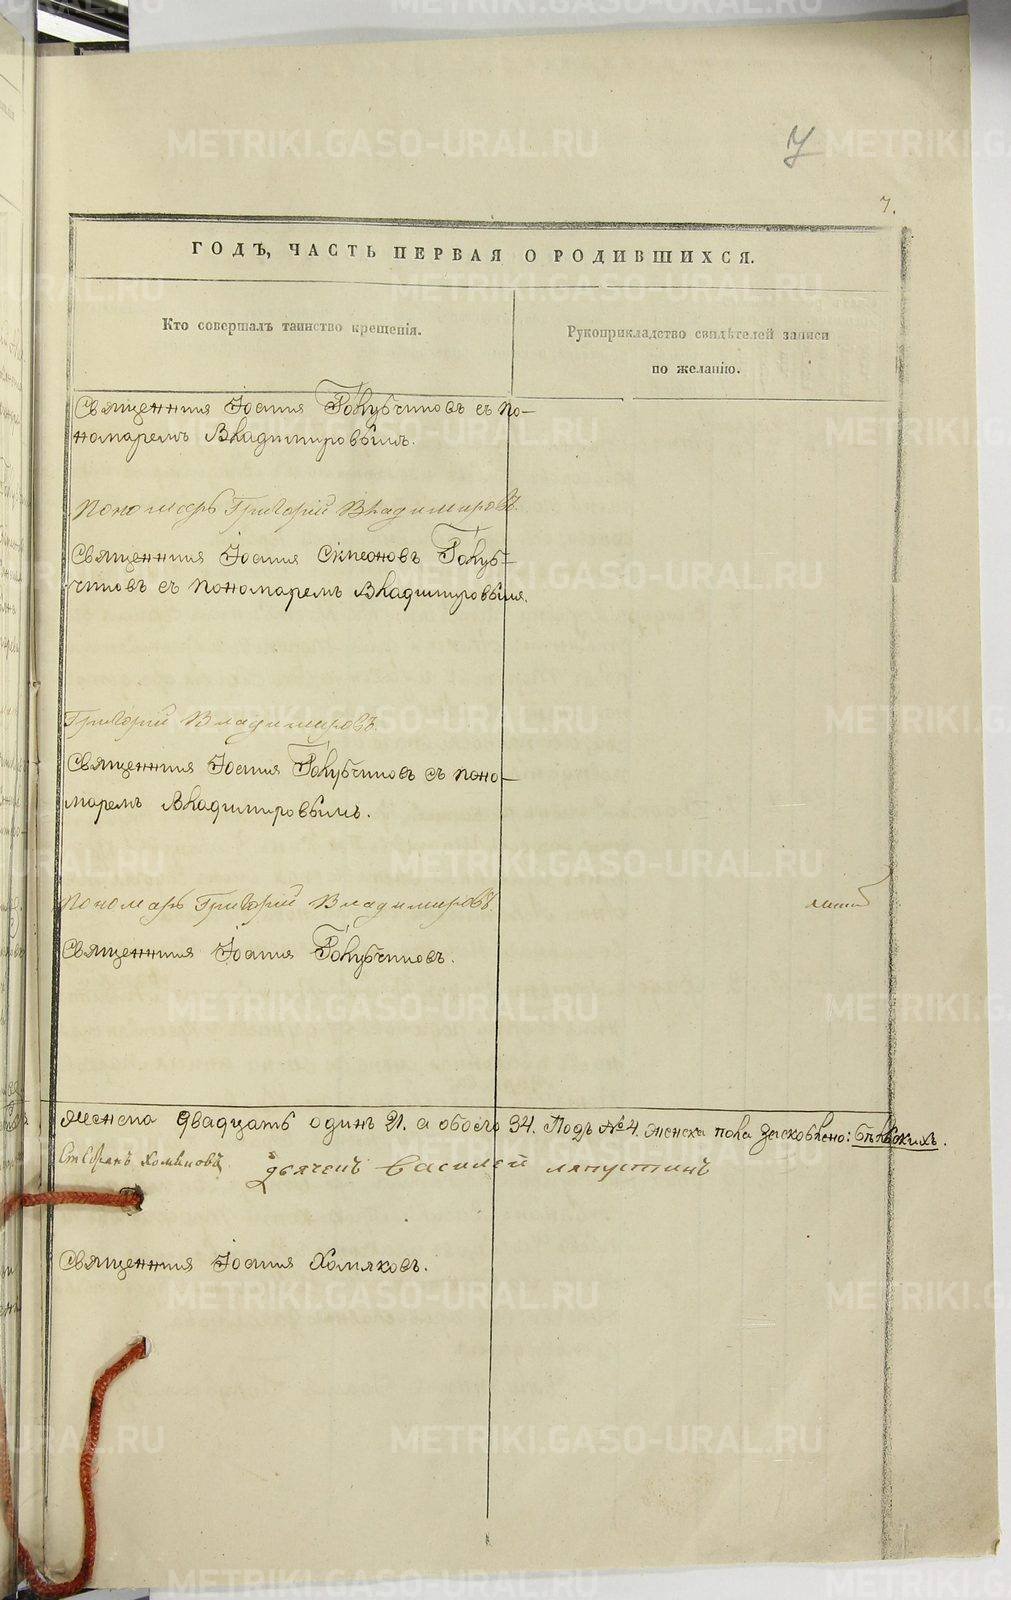 7
7.
ГОДЪ, ЧАСТЬ ПЕРВАЯ О РОДИВШИХСЯ.
Кто совершалъ таинство крещенія.
Рукоприкладство свидѣтелей записи
по желанію.
Священникъ Іоаннъ Голубчиковъ съ по-
номаремъ Владимировымъ.
Пономарь Григорій Владимировъ.
Священникъ Іоаннъ Симеоновъ Голуб-
чиковъ съ пономаремъ Владимировымъ.
Григорій Владимировъ.
Священникъ Іоаннъ Голубчиковъ съ поно-
маремъ Владимировымъ.
Пономарь Григорій Владимировъ.
Священникъ Іоаннъ Голубчиковъ.
женска двадцать одинъ 21. а обоего 34. Подъ №4. женска пола заскоблено:
Стефанъ Хомяковъ дьячекъ Василей Ляпустинъ
Священникъ Іоаннъ Хомяковъ.
METRIKI.GASO-URAL.RU